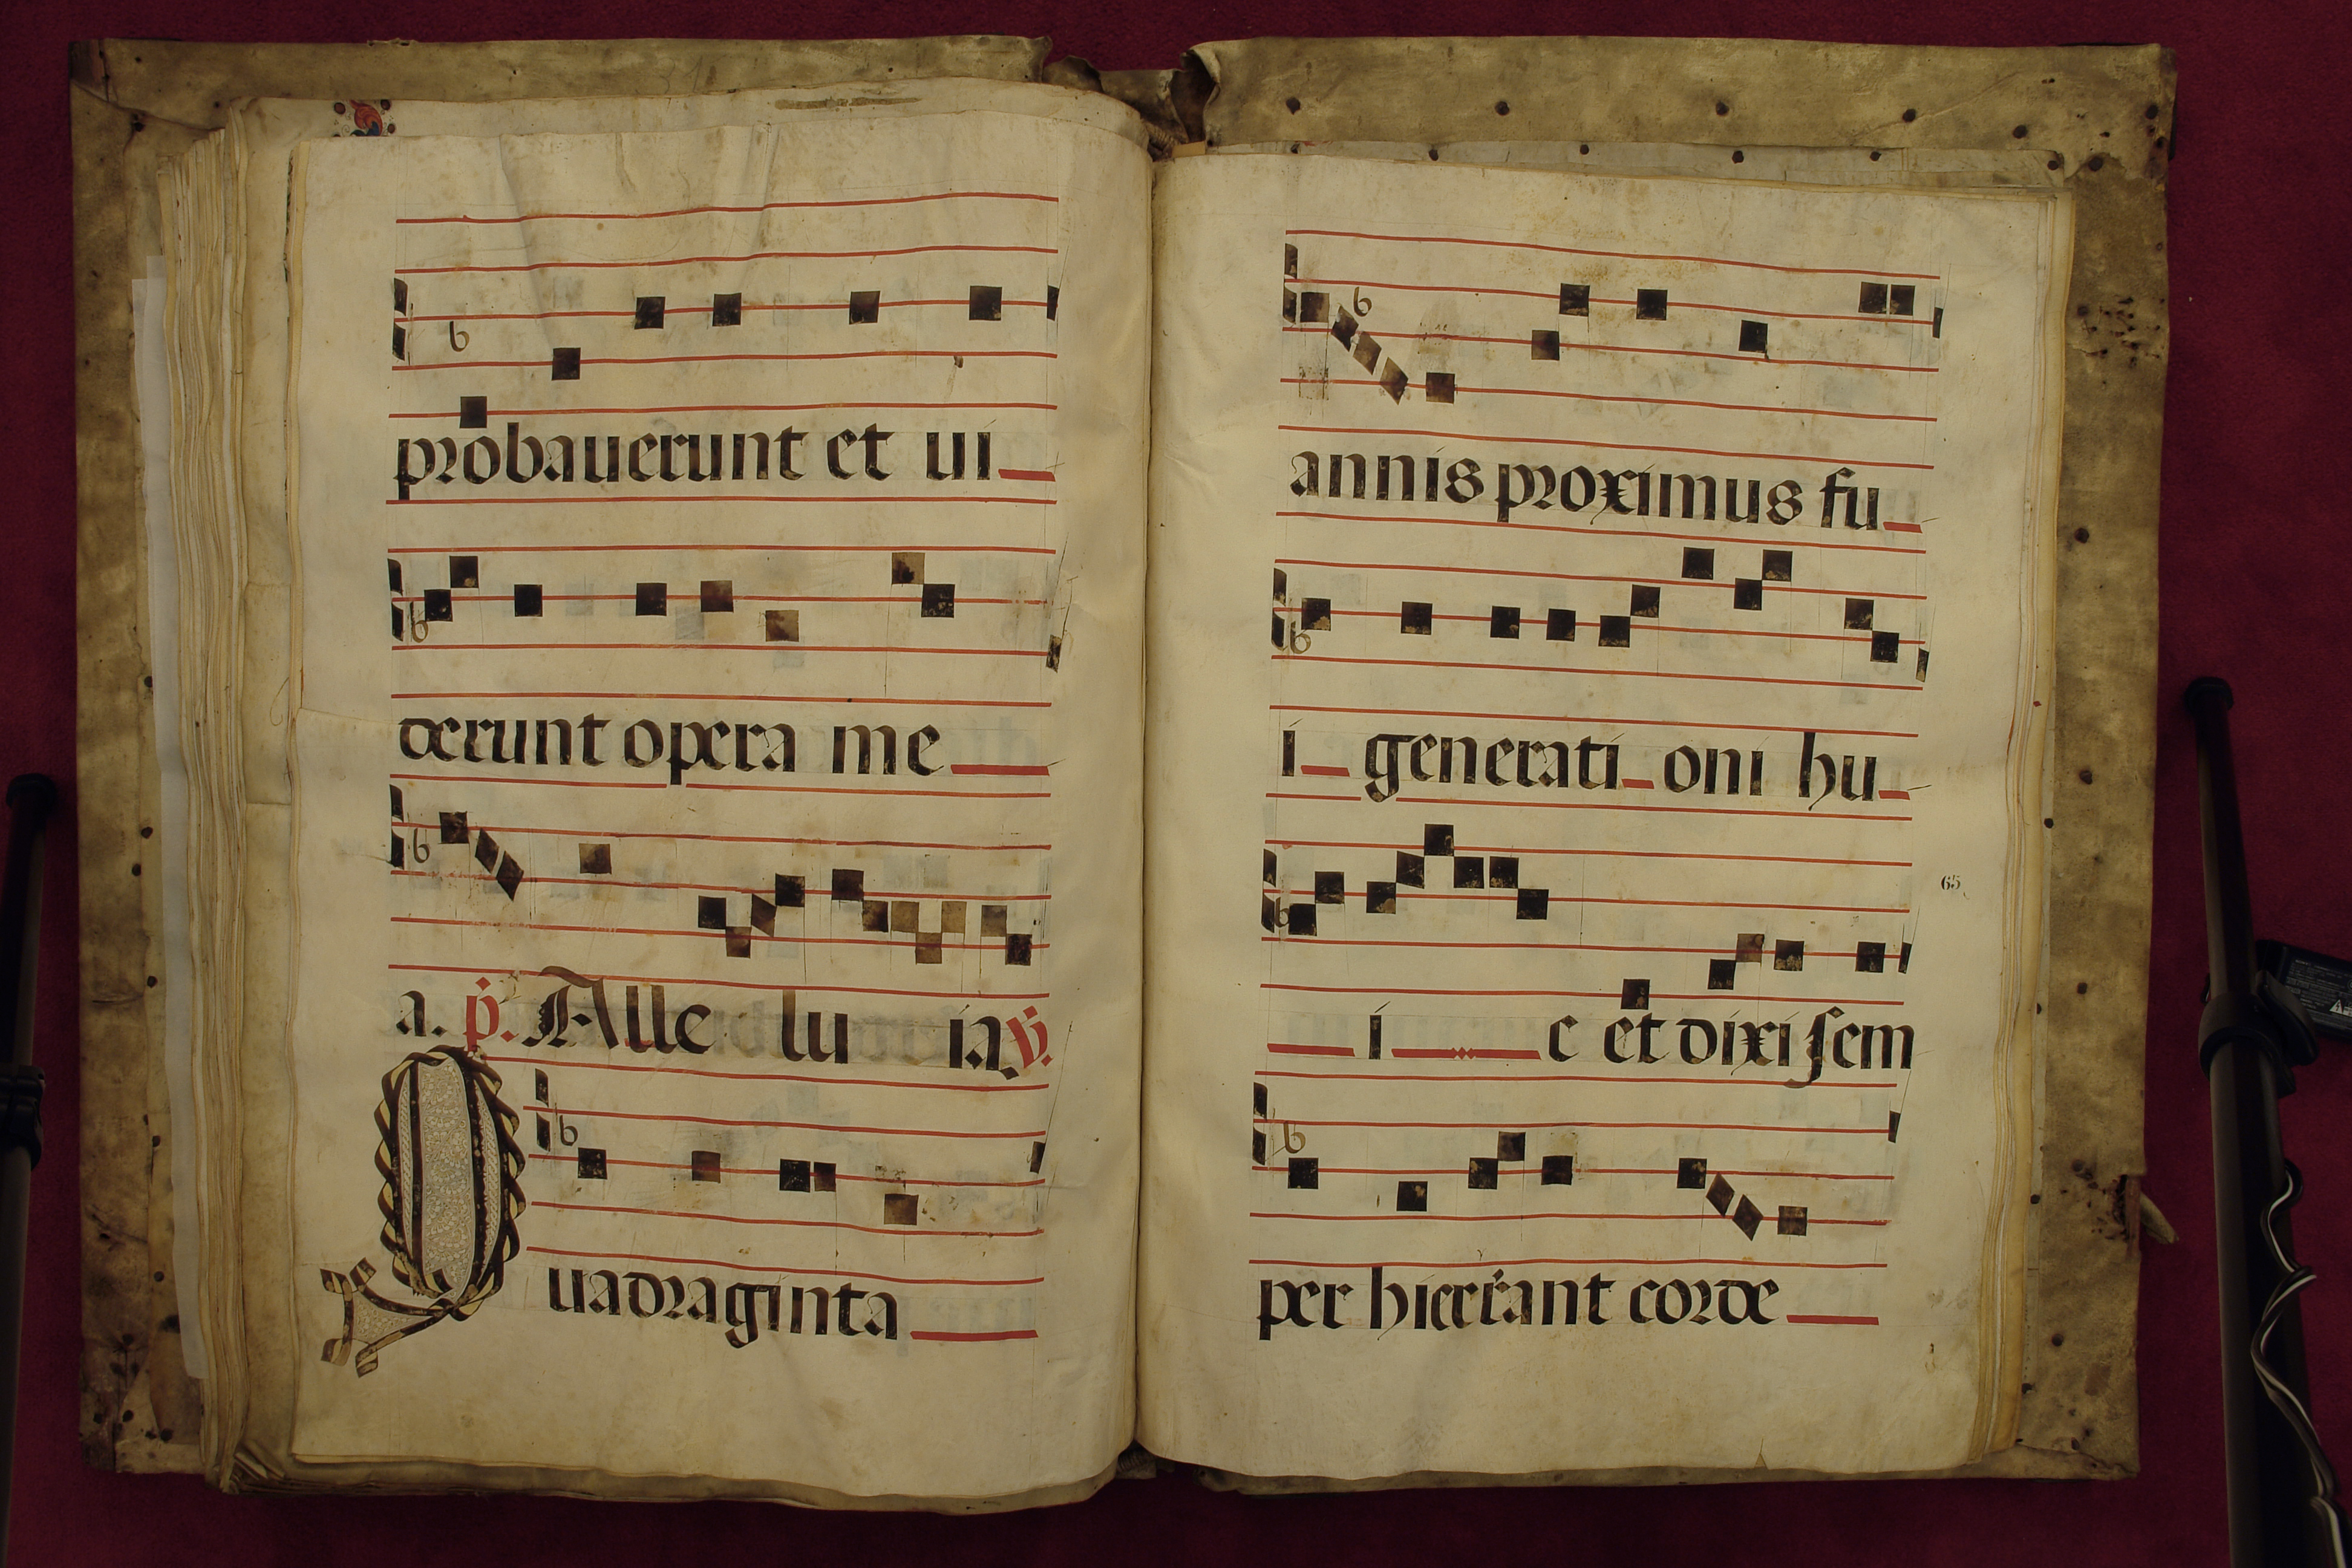 probauerunt et ui
derunt opera me
a. p. Alle lu ia v.
Quadraginta
annis proximus fu
i generati oni hu
i c et dixi sem
per hi errant corde
65